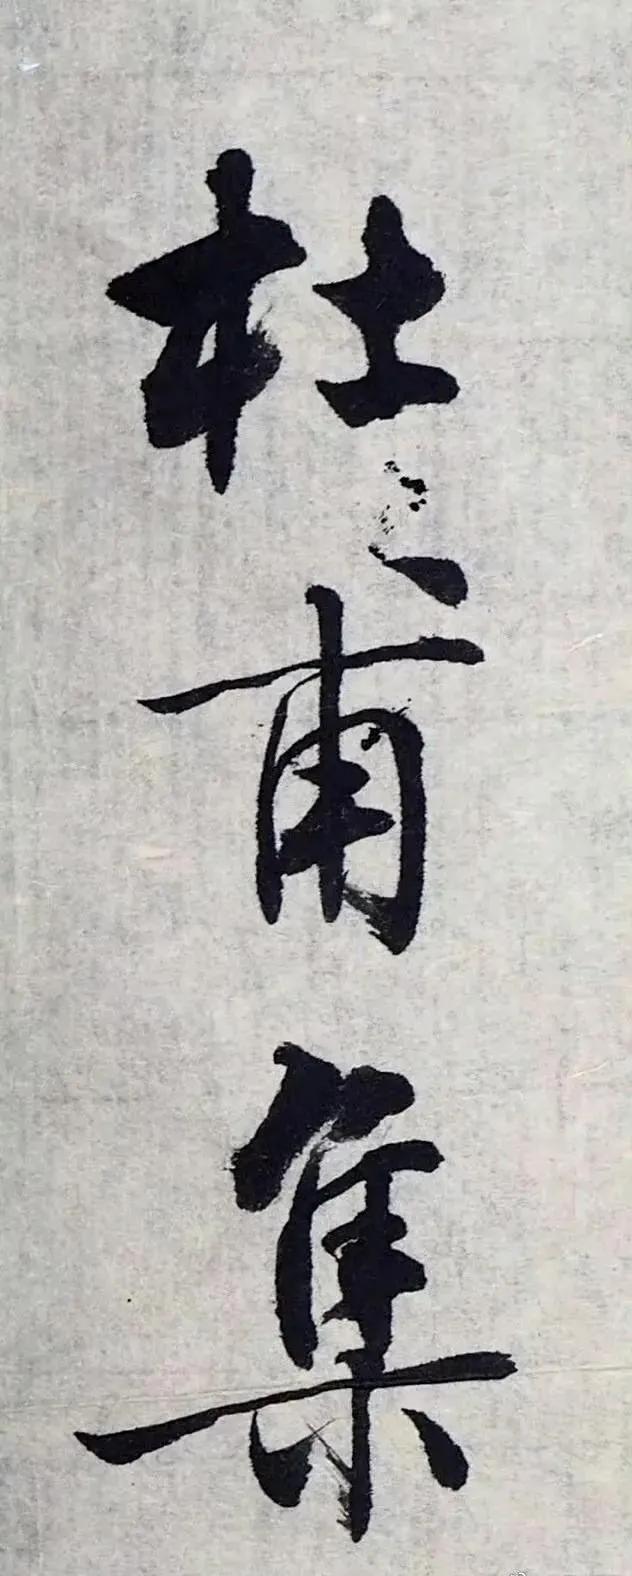 杜甫集